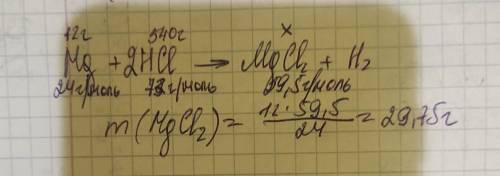 12г 540г x
Mg + 2HCl → MgCl₂ + H₂
24г/моль 73г/моль 59,5г/моль
m(MgCl₂) = 12·59,5 / 24 = 29,75г